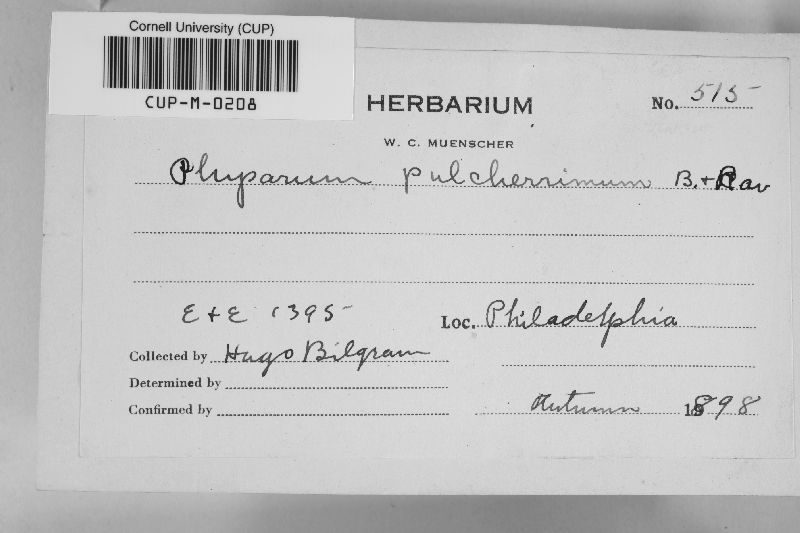 Cornell University (CUP)
CUP-M-0208
HERBARIUM
No. 515
W. C. MUENSCHER
Physarum pulcherrimum B. + Rav
E + E 1395
Loc. Philadelphia
Collected by Hugo Bilgram
Determined by
Confirmed by
Autumn 1898